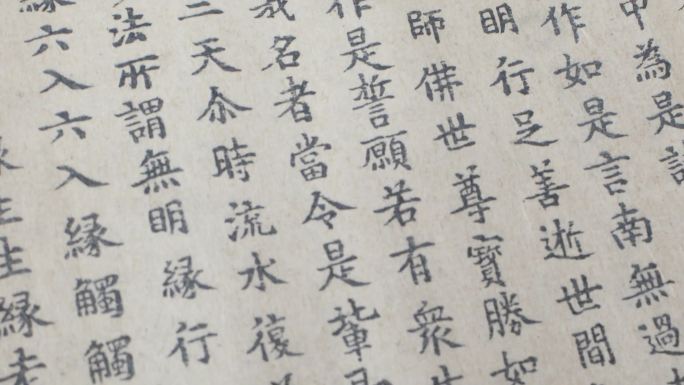 中為是
作如是言南無過
眀行足善逝世間
師佛世尊寶勝如
作是誓願若有衆生
我名者當令是輩
天尒時流水復
法所謂無眀縁行
縁六入六入縁觸觸
生生縁老